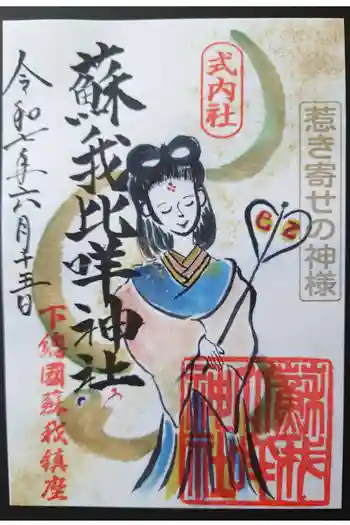 式内社
惹き寄せの神様
蘇我比咩神社
令和七年六月十五日
下総國蘇我鎮座
蘇我比咩神社